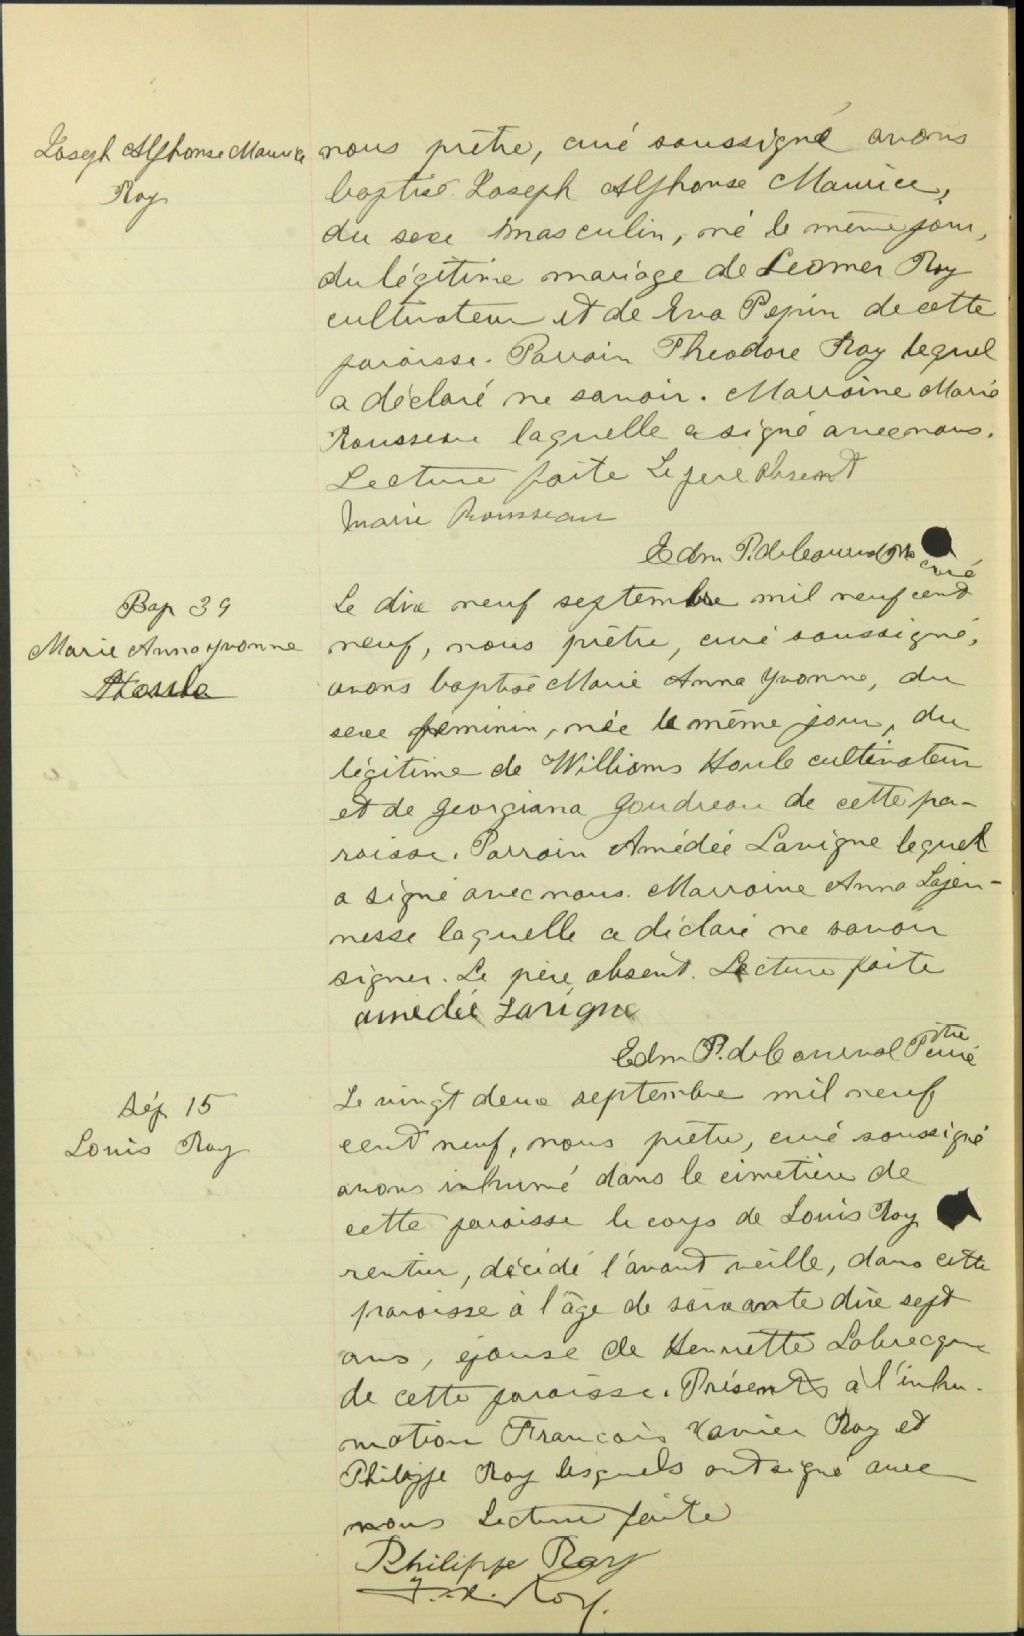 Joseph Alphonse Maurice
Roy
nous prêtre, curé soussigné avons
baptisé Joseph Alphonse Maurice,
du sexe masculin, né le même jour,
du légitime mariage de Leomer Roy
cultivateur et de Eva Pepin de cette
paroisse. Parrain Theodore Roy lequel
a déclaré ne savoir. Marraine Marie
Rousseau laquelle a signé avec nous.
Lecture faite Le père absent
Marie Rousseau
Edm P. de Courval Ptre curé
Bap 39
Marie Anna Yvonne
Houle
Le dix neuf septembre mil neuf cent
neuf, nous prêtre, curé soussigné,
avons baptisé Marie Anna Yvonne, du
sexe feminin, née le même jour, du
légitime de Williams Houle cultivateur
et de Georgiana Goudreau de cette pa-
roisse. Parrain Amédée Lavigne lequel
a signé avec nous. Marraine Anna Lajeu-
nesse laquelle a déclaré ne savoir
signer. Le père absent. Lecture faite
amedée Lavigne
Edm P. de Courval Ptre curé
Sép 15
Louis Roy
Le vingt deux septembre mil neuf
cent neuf, nous prêtre, curé soussigné
avons inhumé dans le cimetière de
cette paroisse le corps de Louis Roy
rentier, décédé l'avant veille, dans cette
paroisse à l'âge de soixante dix sept
ans, épouse de Henriette Labrecque
de cette paroisse. Présents à l'inhu-
mation François Xavier Roy et
Philippe Roy lesquels ont signé avec
nous Lecture faite
Philippe Roy
F. X. Roy.